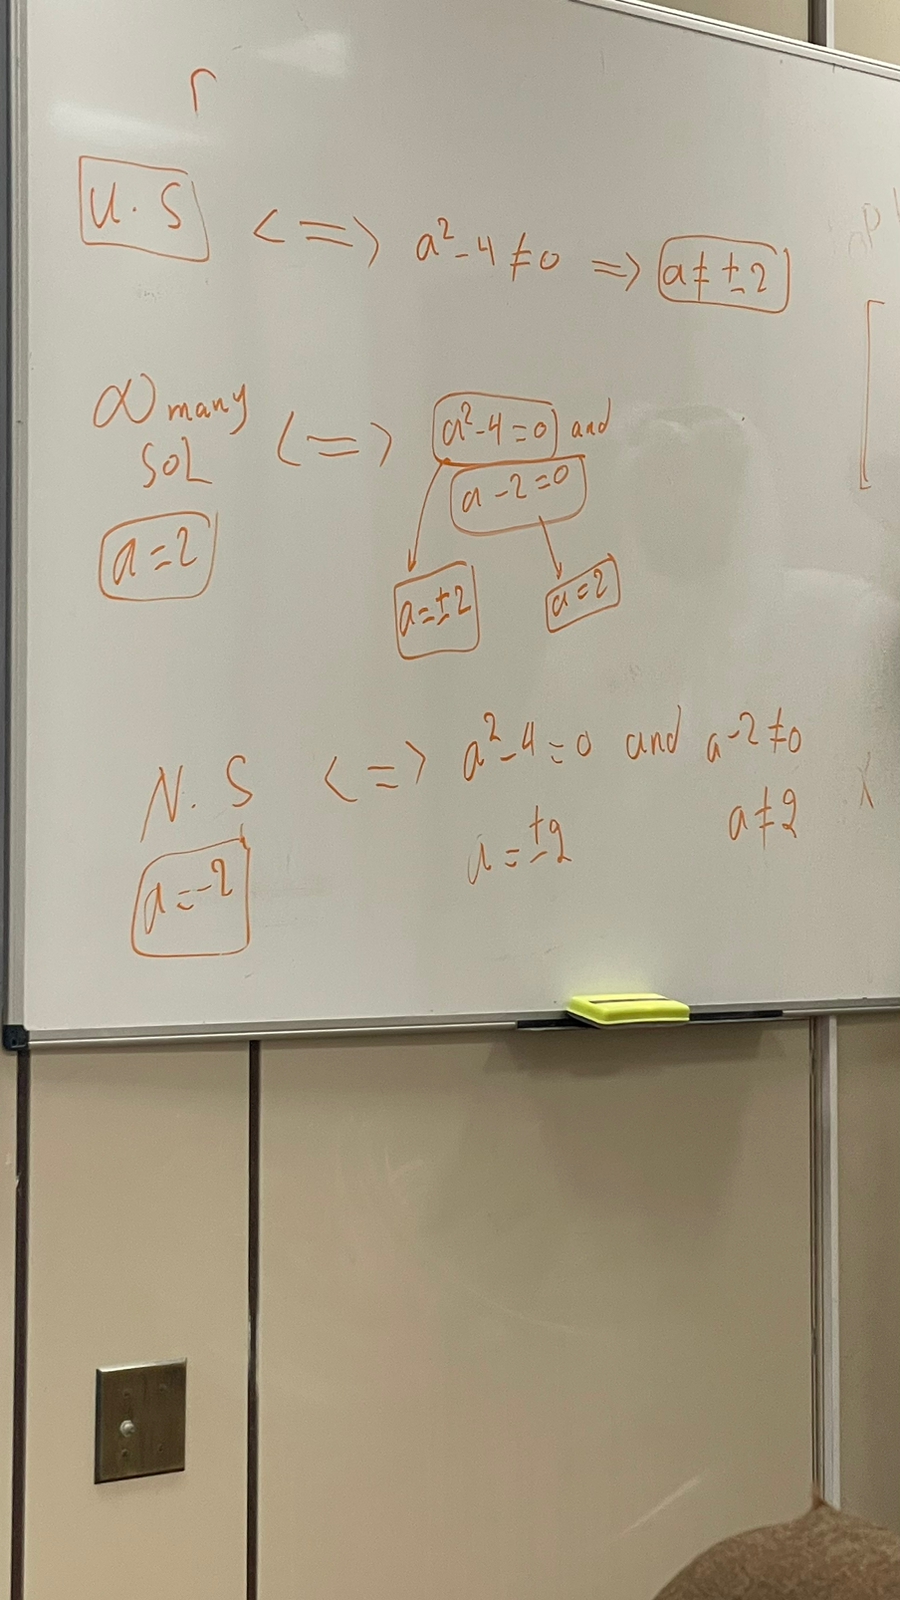 U.S <=> a²-4≠0 => a≠±2
∞ many
SOL <=> a²-4=0 and
a-2=0
a=2
a=±2 a=2
N.S <=> a²-4=0 and a-2≠0
a=±2 a≠2
a=-2